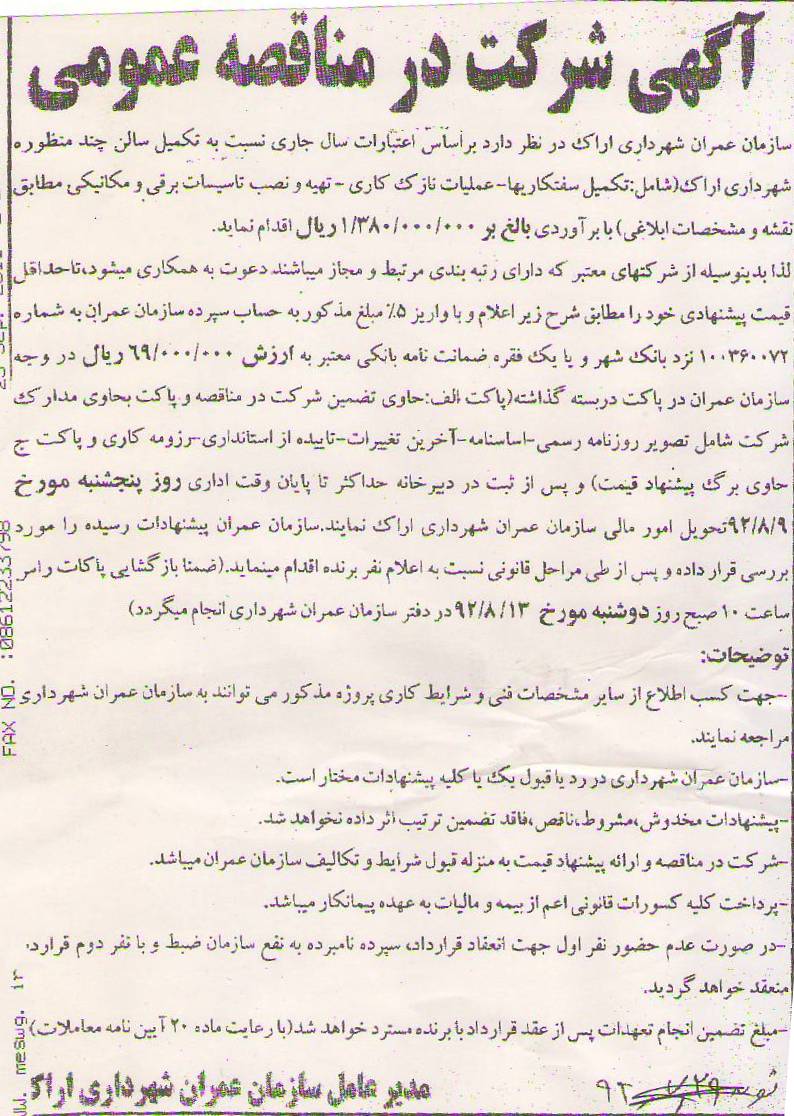 آگهی شرکت در مناقصه عمومی
سازمان عمران شهرداری اراک در نظر دارد براساس اعتبارات سال جاری نسبت به تکمیل سالن چند منظوره
شهرداری اراک(شامل:تکمیل سفتکاریها-عملیات نازک کاری - تهیه و نصب تاسیسات برقی و مکانیکی مطابق
نقشه و مشخصات ابلاغی) با برآوردی بالغ بر ۱/۳۸۰/۰۰۰/۰۰۰ ریال اقدام نماید.
لذا بدینوسیله از شرکتهای معتبر که دارای رتبه بندی مرتبط و مجاز میباشند دعوت به همکاری میشود،تاحداقل
قیمت پیشنهادی خود را مطابق شرح زیر اعلام و با واریز ۵٪ مبلغ مذکور به حساب سپرده سازمان عمران به شماره
۱۰۰۳۶۰۰۷۲ نزد بانک شهر و یا یک فقره ضمانت نامه بانکی معتبر به ارزش ۶۹/۰۰۰/۰۰۰ ریال در وجه
سازمان عمران در پاکت دربسته گذاشته(پاکت الف:حاوی تضمین شرکت در مناقصه و پاکت ب:حاوی مدارک
شرکت شامل تصویر روزنامه رسمی-اساسنامه-آخرین تغییرات-تاییده از استانداری-رزومه کاری و پاکت ج
حاوی برگ پیشنهاد قیمت) و پس از ثبت در دبیرخانه حداکثر تا پایان وقت اداری روز پنجشنبه مورخ
۹۲/۸/۹تحویل امور مالی سازمان عمران شهرداری اراک نمایند.سازمان عمران پیشنهادات رسیده را مورد
بررسی قرار داده و پس از طی مراحل قانونی نسبت به اعلام نفر برنده اقدام مینماید.(ضمنا بازگشایی پاکات راس
ساعت ۱۰ صبح روز دوشنبه مورخ ۹۲/۸/۱۳ در دفتر سازمان عمران شهرداری انجام میگردد)
توضیحات:
-جهت کسب اطلاع از سایر مشخصات فنی و شرایط کاری پروژه مذکور می توانند به سازمان عمران شهرداری
مراجعه نمایند.
-سازمان عمران شهرداری در رد یا قبول یک یا کلیه پیشنهادات مختار است.
-پیشنهادات مخدوش،مشروط،ناقص،فاقد تضمین ترتیب اثر داده نخواهد شد.
-شرکت در مناقصه و ارائه پیشنهاد قیمت به منزله قبول شرایط و تکالیف سازمان عمران میباشد.
-پرداخت کلیه کسورات قانونی اعم از بیمه و مالیات به عهده پیمانکار میباشد.
-در صورت عدم حضور نفر اول جهت انعقاد قرارداد، سپرده نامبرده به نفع سازمان ضبط و با نفر دوم قرارد،
منعقد خواهد گردید.
-مبلغ تضمین انجام تعهدات پس از عقد قرارداد با برنده مسترد خواهد شد(با رعایت ماده ۲۰ آیین نامه معاملات)
مدیر عامل سازمان عمران شهرداری اراک
FAX NO. :08612233798